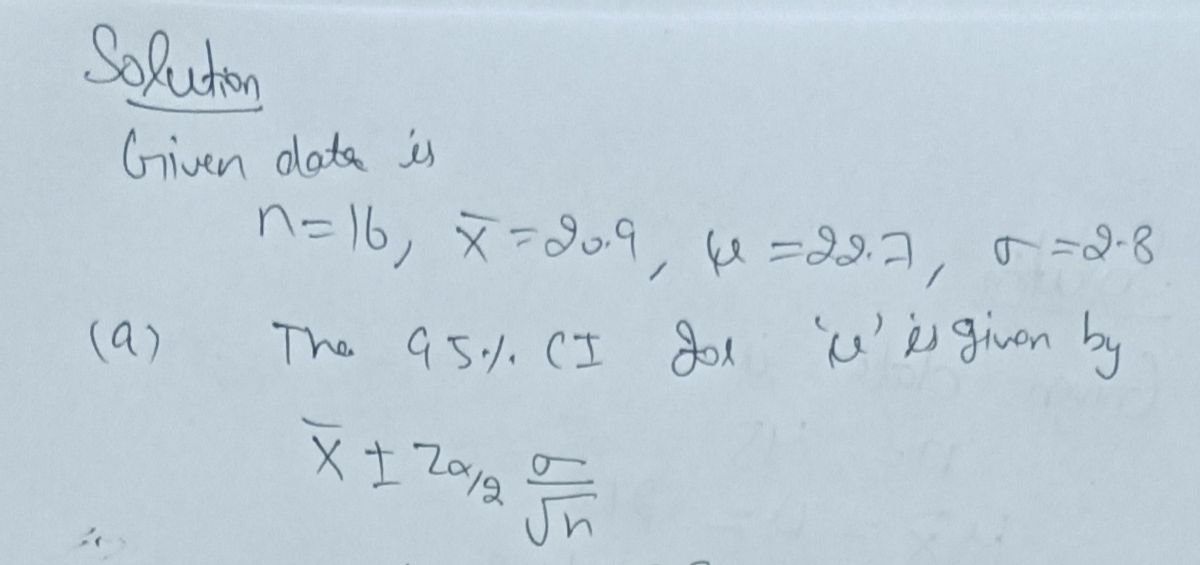 Solution
Given data is
n=16, x̄ =20.9, μ =22.7, σ =2.8
(a) The 95% CI for 'μ' is given by
x̄ ± Zα/2 σ/√n